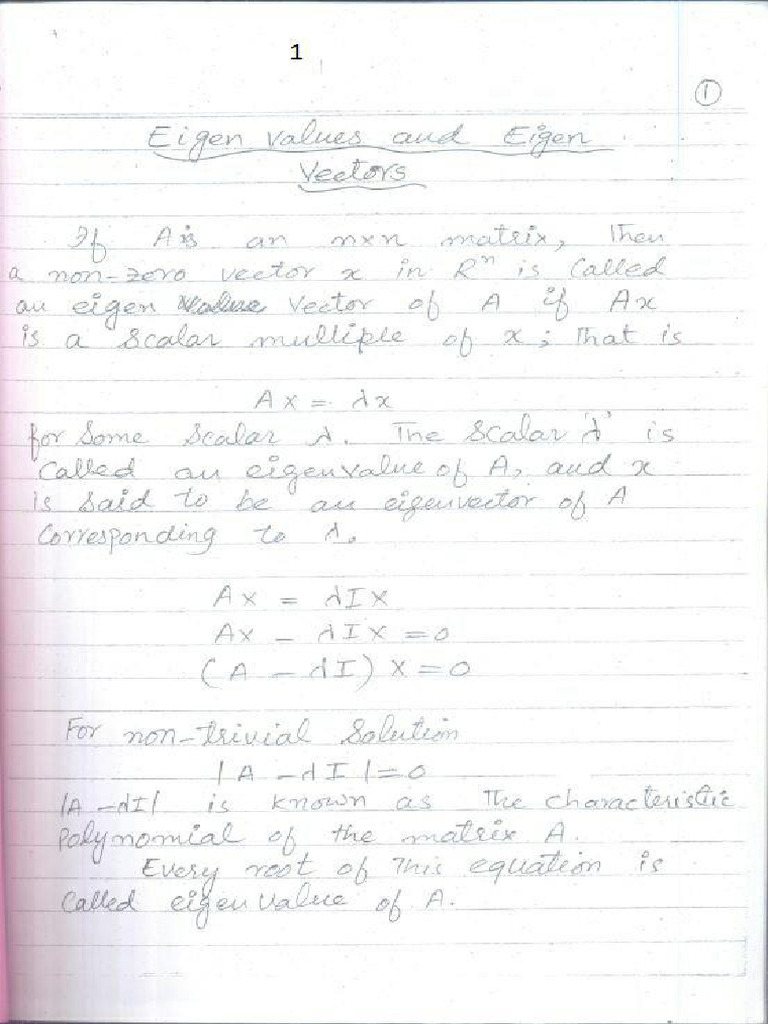 1
①
Eigen values and Eigen
Vectors
If A is an n×n matrix, Then
a non-zero vector x in Rⁿ is Called
an eigen vector of A if Ax
is a Scalar multiple of x; That is
Ax = λx
for Some Scalar λ. The Scalar 'λ' is
Called an eigenvalue of A, and x
is Said to be an eigenvector of A
Corresponding to λ.
AX = λIX
AX - λIX = 0
(A - λI) X = 0
For non-trivial Solution
|A - λI| = 0
|A - λI| is known as The characteristic
polynomial of the matrix A.
Every root of This equation is
Called eigen value of A.